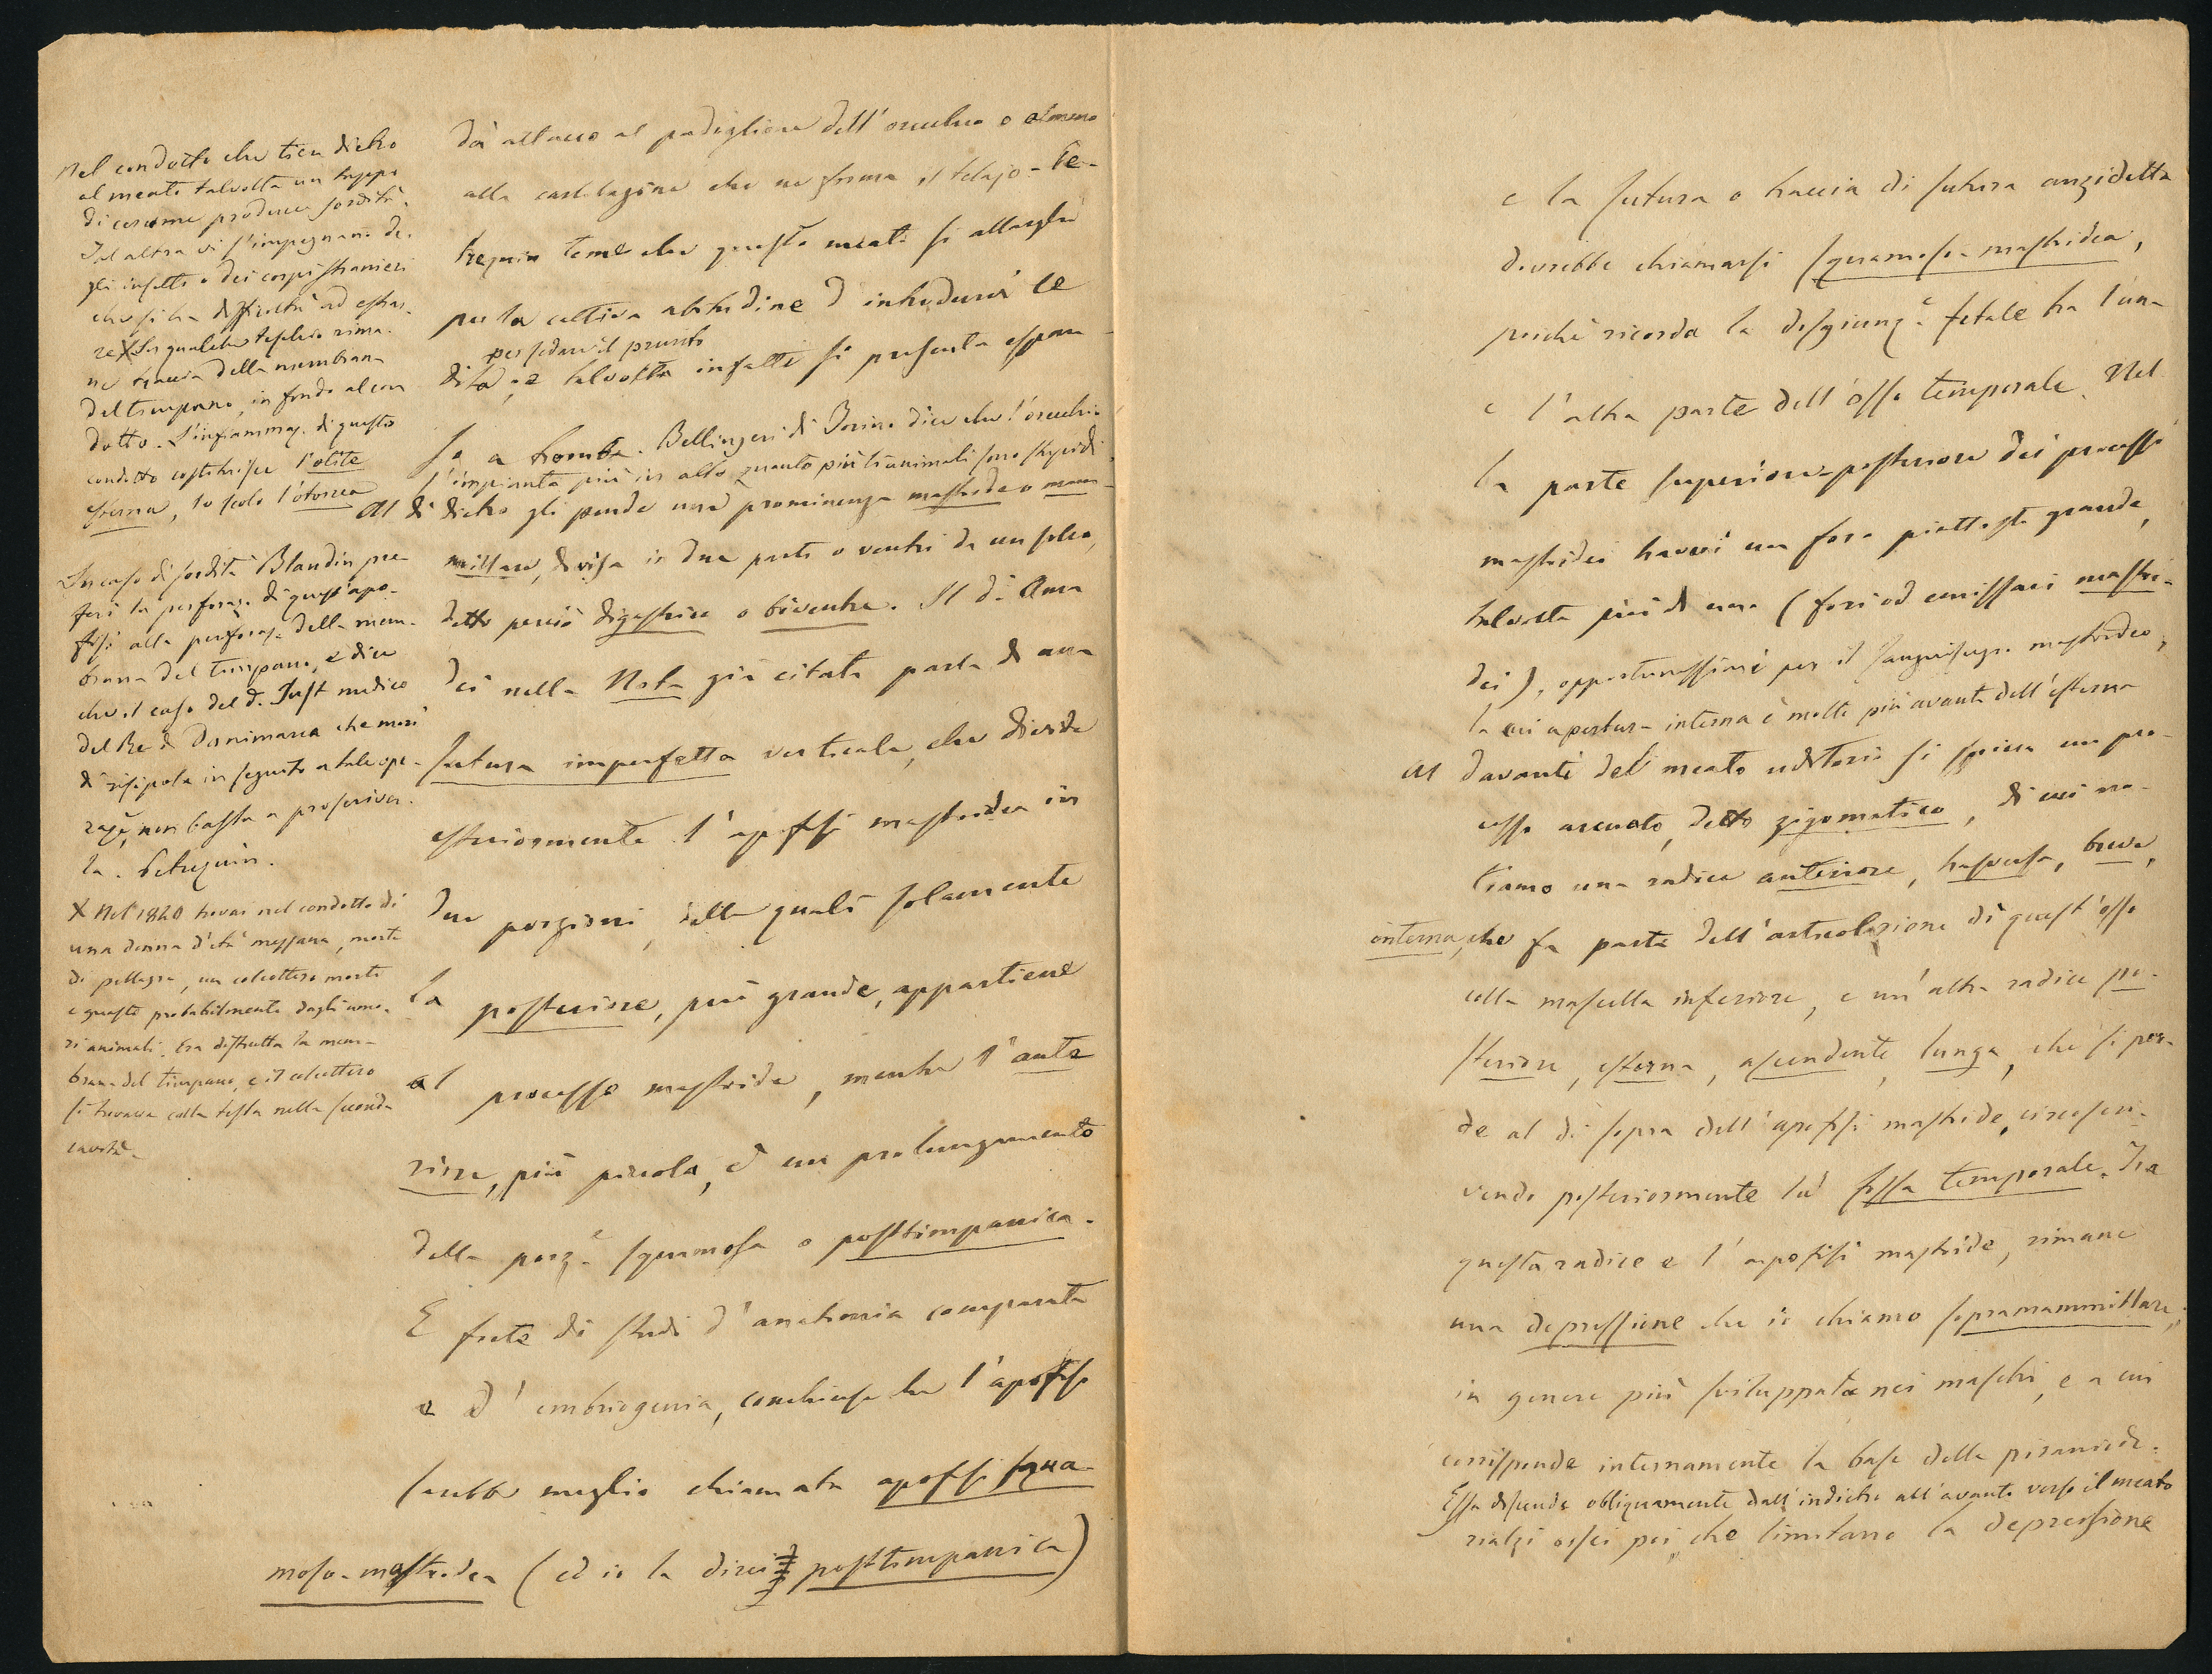 Nel condotto che tien dietro
al meato talvolta un tappo
di cerume produce sordità.
Tal altra vi s'impegnano de-
gli insetti o dei corpi stranieri
che si ha difficoltà ad estrar-
re X In qualche teschio rima-
ne traccia della membrana
del timpano, in fondo al con
dotto. L'infiammaz. di questo
condotto costituisce l'otite
esterna, lo scolo l'otorrea
In caso di sordità Blandin pre
ferì la perforaz. di quest'apo-
fisi alla perforaz. della mem-
brana del timpano, e dice
che il caso del d. Just medico
del Re di Danimarca che morì
di risipola in seguito a tale ope-
raze, non basta a proscriver-
la. Petrequin.
X Nel 1840 trovai nel condotto di
una donna d'età mezzana, morta
di pellagra, un coleottero morto
e guasto probabilmente dagli umo-
ri animali. Era distrutta la mem-
brana del timpano, e il coleottero
si trovava colla testa nella seconda
cavità.
dà attacco al padiglione dell'orecchio o almeno
alla cartilagine che ne forma il telajo - Pe-
trequin teme che questo meato si allarghi
per la cattiva abitudine d'introdurvi le
per sedare il prurito
dita, e talvolta infatti si presenta espan
so a tromba. Bellingeri di Torino dice che l'orecchio
s'impianta più in alto quanto più gli animali sono stupidi.
Al di dietro gli pende una prominenza mastoide o mam-
millare, divisa in due parti o ventri da un solco,
detto perciò digastrico o biventre. Il d. Cuna
dei nella Nota già citata parla di una
sutura imperfetta verticale, che divide
esteriormente l'apofisi mastoidea in
due porzioni, delle quali solamente
la posteriore, più grande, appartiene
al processo mastoide, mentre l'ante
riore, più piccola, è un prolungamento
della porze squamosa o posttimpanica.
E forte di studi d'anatomia comparata
e d'embriogenia, conchiuse che l'apofisi
sarebbe meglio chiamata apofisi squa-
moso-mastoidea (ed io la direi posttimpanica)
e la sutura o traccia di sutura anzidetta
dovrebbe chiamarsi squamoso-mastoidea,
perchè ricorda la disgiunze fetale tra l'una
e l'altra parte dell'osso temporale. Nel
la parte superiore-posteriore dei processi
mastoidei havvi un foro piuttosto grande,
talvolta più di uno (fori od emissari mastoi-
dei), opportunissimi per il sanguisugo mastoideo,
la cui apertura interna è molto più avanti dell'esterna
Al davanti del meato uditorio si spicca un pro-
cesso arcuato, detto zigomatico, di cui no-
tiamo una radice anteriore, trasversa, breve,
interna, che fa parte dell'articolazione di quest'osso
colla mascella inferiore, e un'altra radice po-
steriore, esterna, ascendente, lunga, che si per-
de al di sopra dell'apofisi mastoide, circoscri-
vendo posteriormente la fossa temporale. Tra
questa radice e l'apofisi mastoide, rimane
una depressione che io chiamo sopramammillare,
in genere più sviluppata nei maschi, e a cui
corrisponde internamente la base della piramide.
Essa discende obliquamente dall'indietro all'avanti verso il meato
rialzi ossei poi, che limitano la depressione